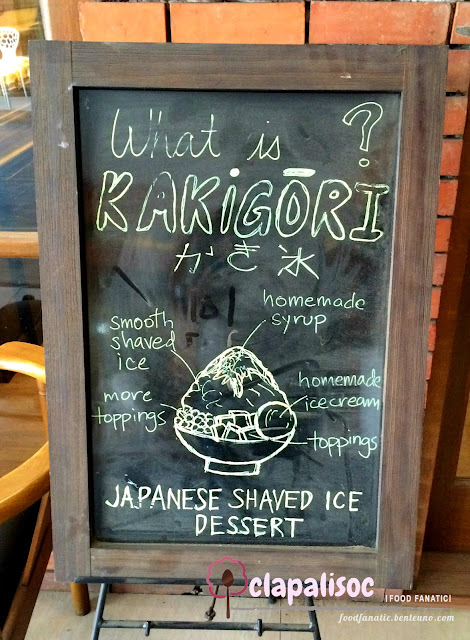 What is ?
KAKIGŌRI
かき氷
homemade
syrup
smooth
shaved
ice
homemade
icecream
more
toppings
toppings
JAPANESE SHAVED ICE
DESSERT
clapalisoc | FOOD FANATIC!
foodfanatic.benteuno.com